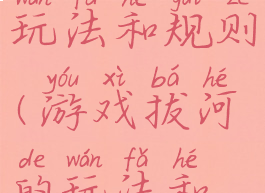 wán fǎ hé guī zé
玩法和规则
yóu xì bá hé
(游戏拔河
de wán fǎ hé
的玩法和